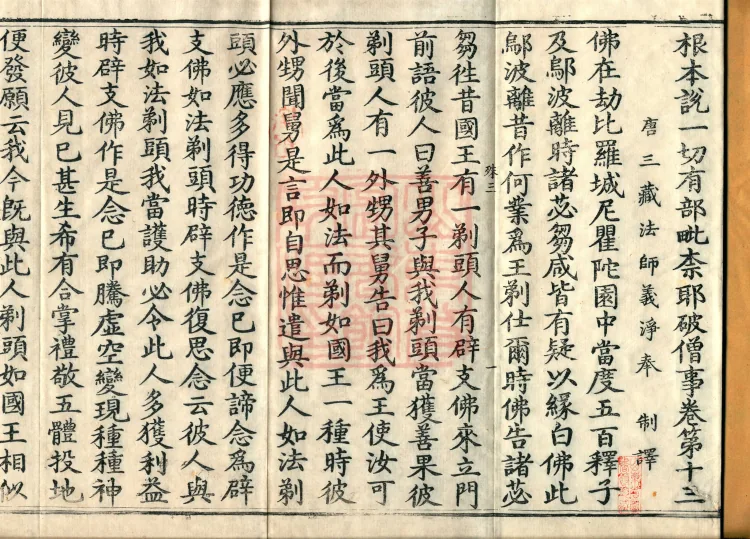 根本說一切有部毗柰耶破僧事卷第十三
唐三藏法師義淨奉 制譯
佛在劫比羅城尼瞿陀園中當度五百釋子
及鄔波離時諸苾芻咸皆有疑以緣白佛此
鄔波離昔作何業爲王剃仕爾時佛告諸苾
芻徃昔國王有一剃頭人有辟支佛來立門
前語彼人曰善男子與我剃頭當獲善果彼
剃頭人有一外甥其舅告曰我爲王使汝可
於後當爲此人如法而剃如國王一種時彼
外甥聞舅是言即自思惟遣與此人如法剃
頭必應多得功德作是念已即便諦念爲辟
支佛如法剃頭時辟支佛復思念云彼人與
我如法剃頭我當護助必令此人多獲利益
時辟支佛作是念已即騰虛空變現種種神
變彼人見已甚生希有合掌禮敬五體投地
便發願云我今旣與此人剃頭如國王相似